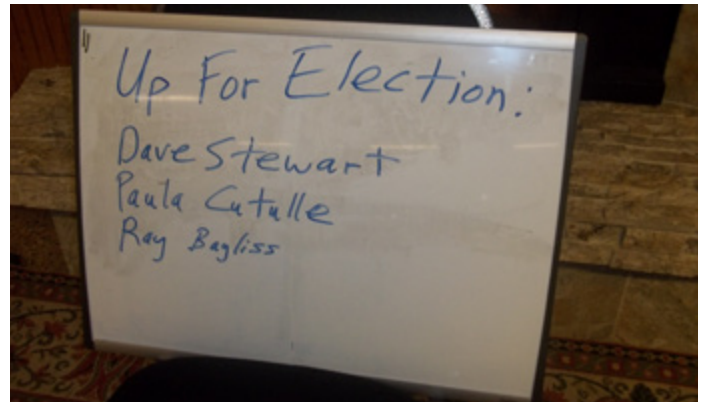 Up For Election:
Dave Stewart
Paula Cutulle
Ray Bagliss